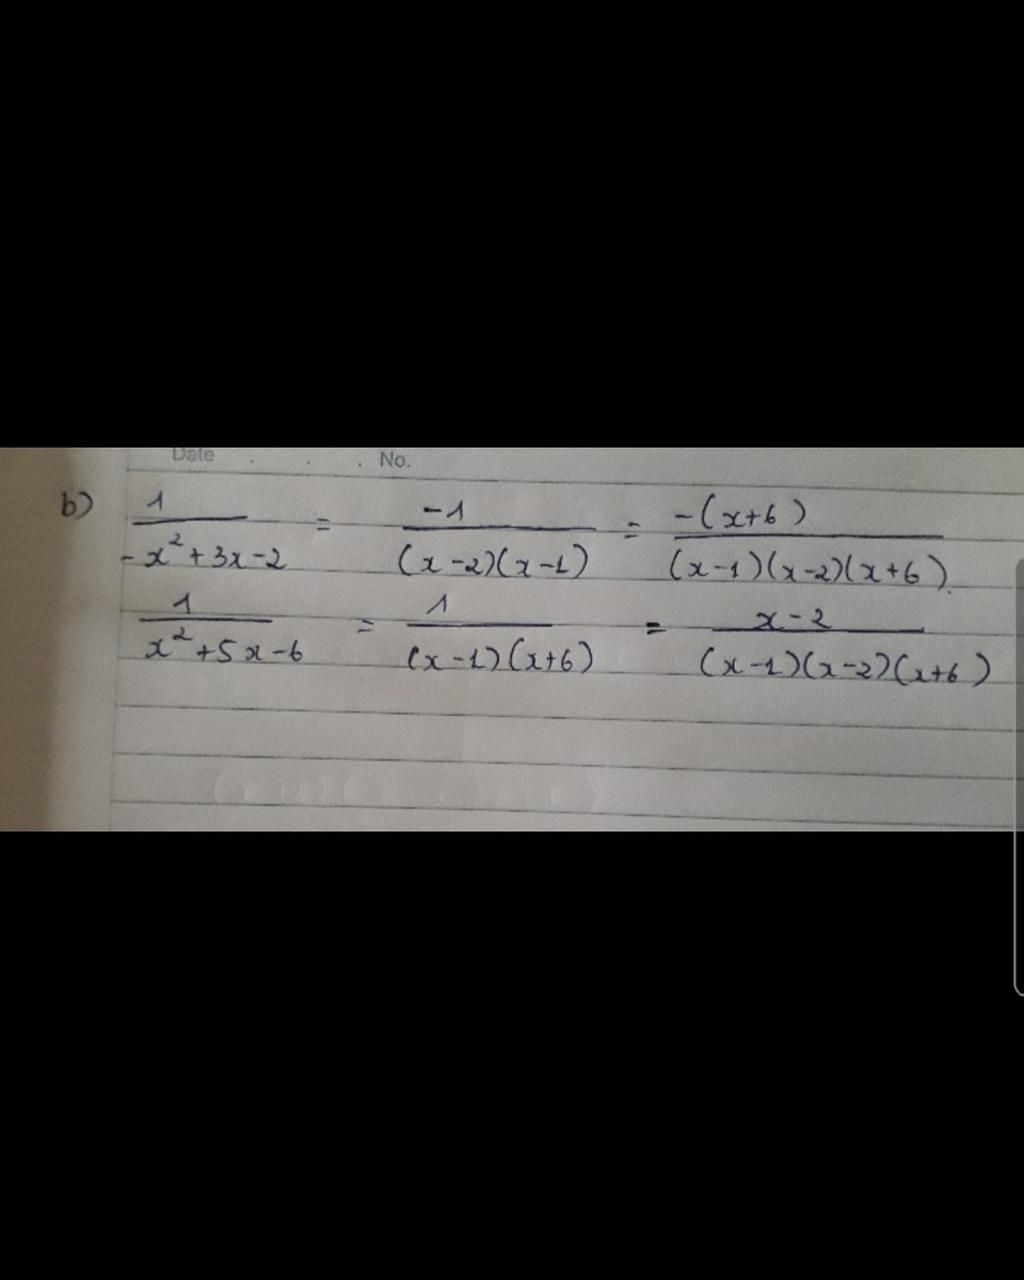 Date . . . No.
b) 1/(-x²+3x-2) = -1/((x-2)(x-1)) = -(x+6)/((x-1)(x-2)(x+6)).
1/(x²+5x-6) = 1/((x-1)(x+6)) = x-2/((x-1)(x-2)(x+6))